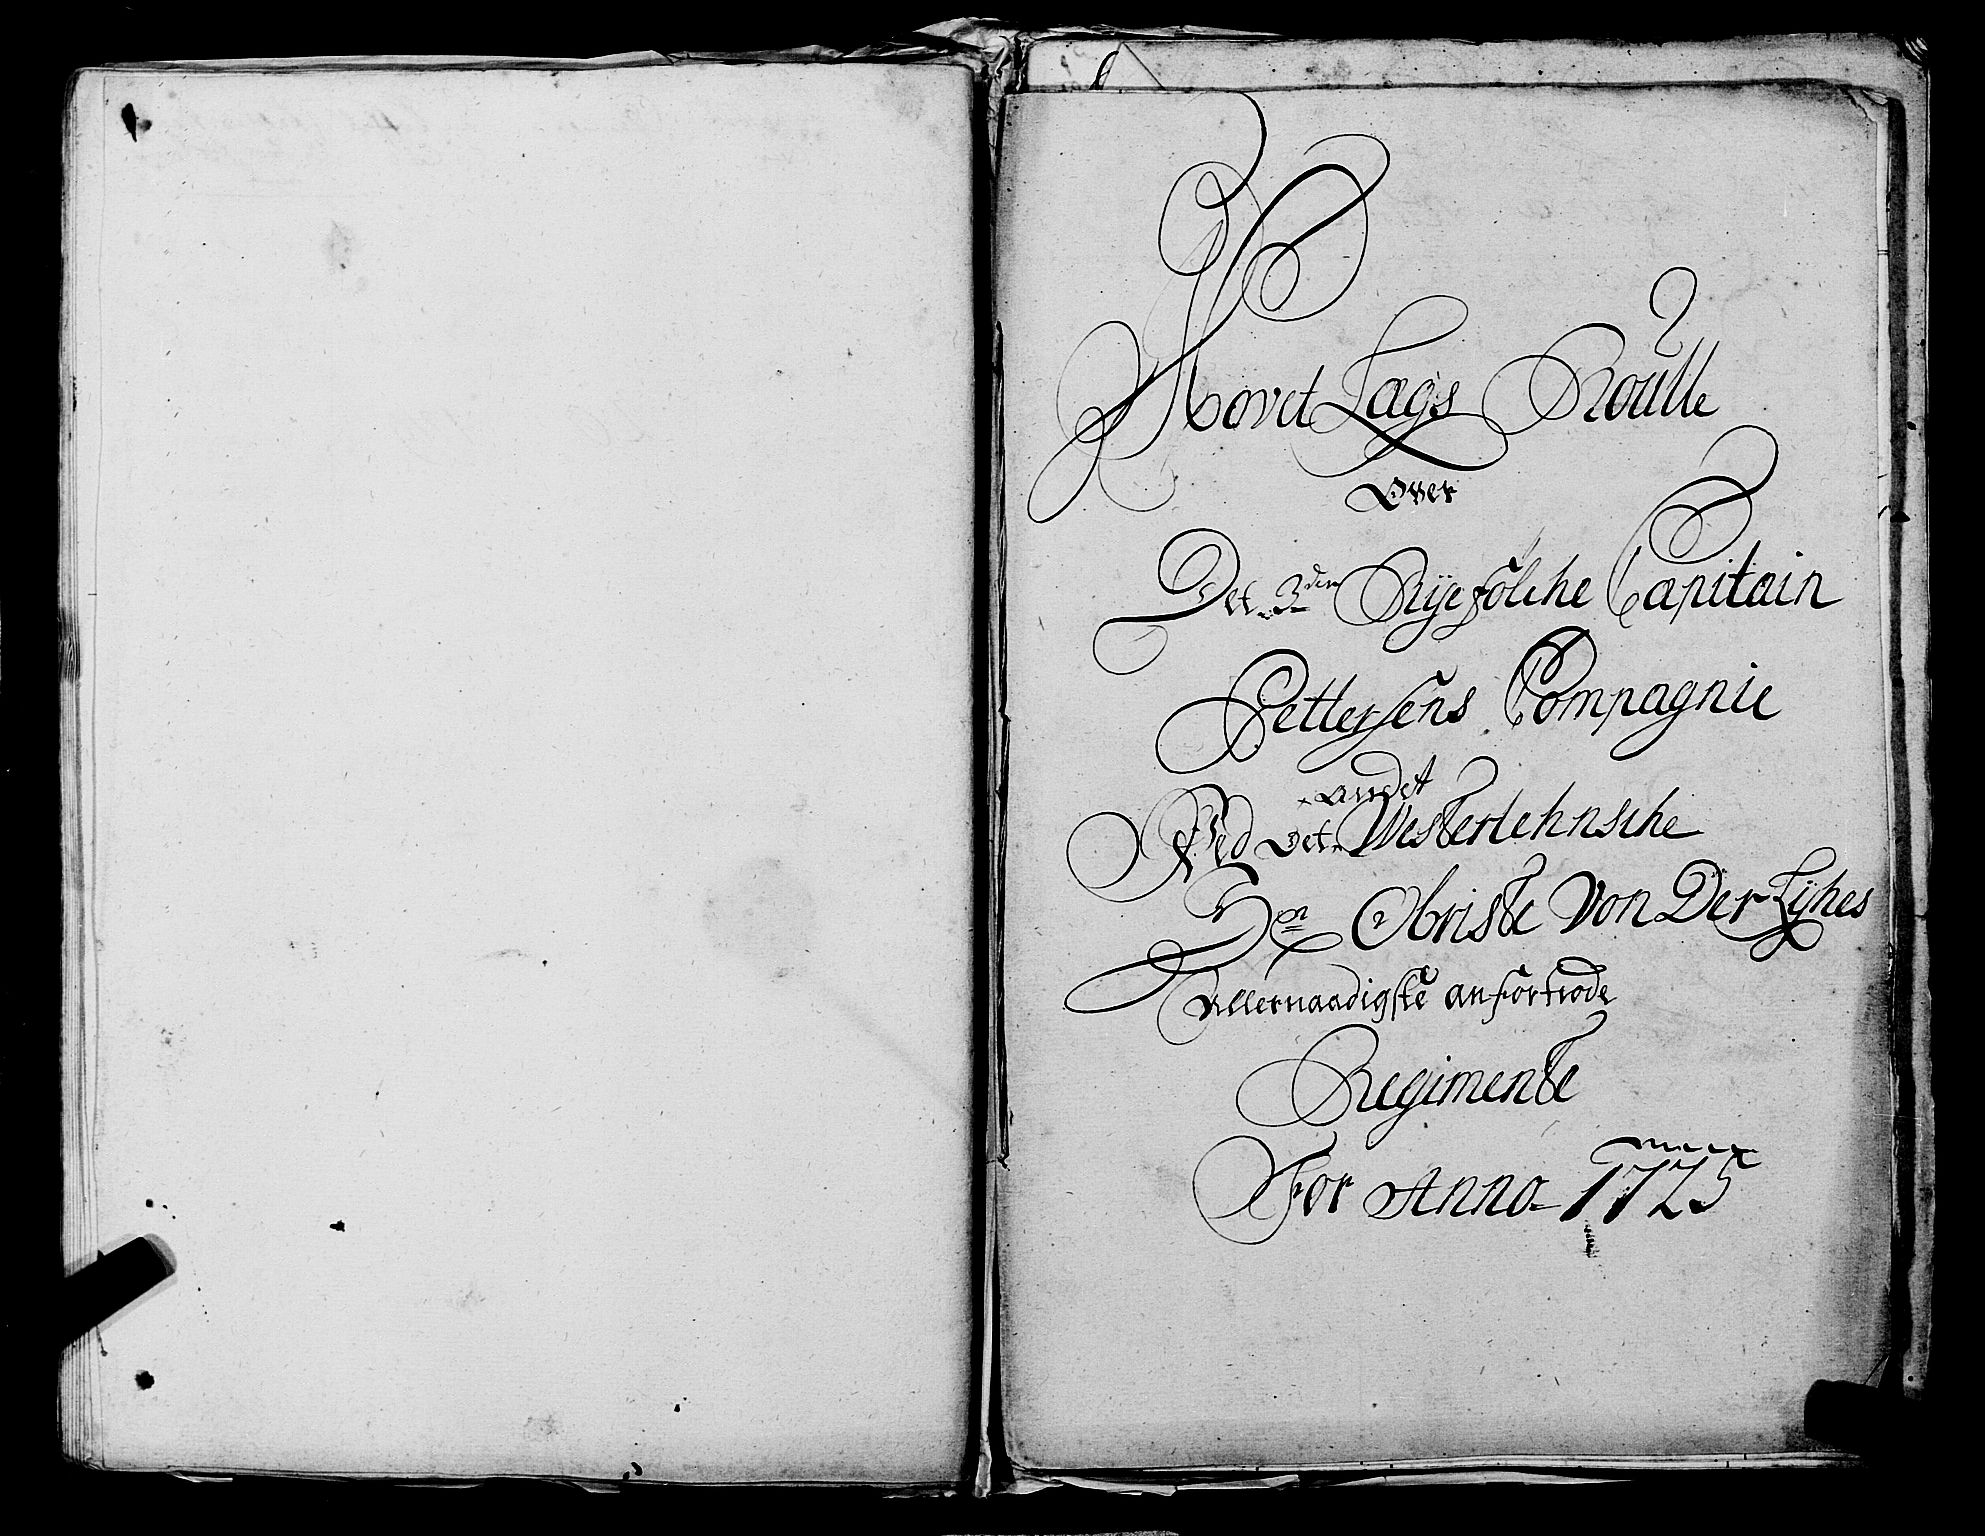 Hovet Lags Roulle
Over
Det 3den Ryefölche Capitain
Pettersens Compagnie
andet
Ved Det Westerlehnsche
Hr Obriste Von Der Lÿhes
Allernaadigste anfortrode
Regimente
For Anno 1725